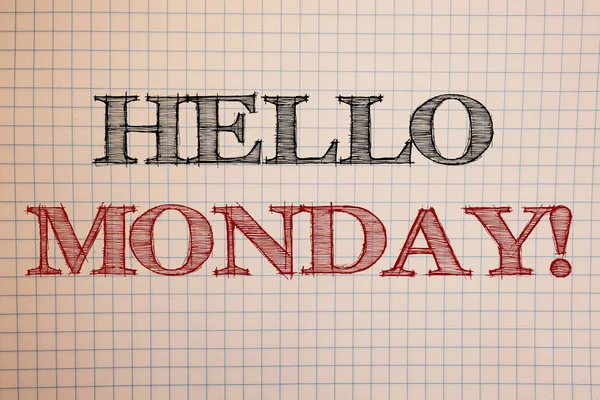 HELLO
MONDAY!